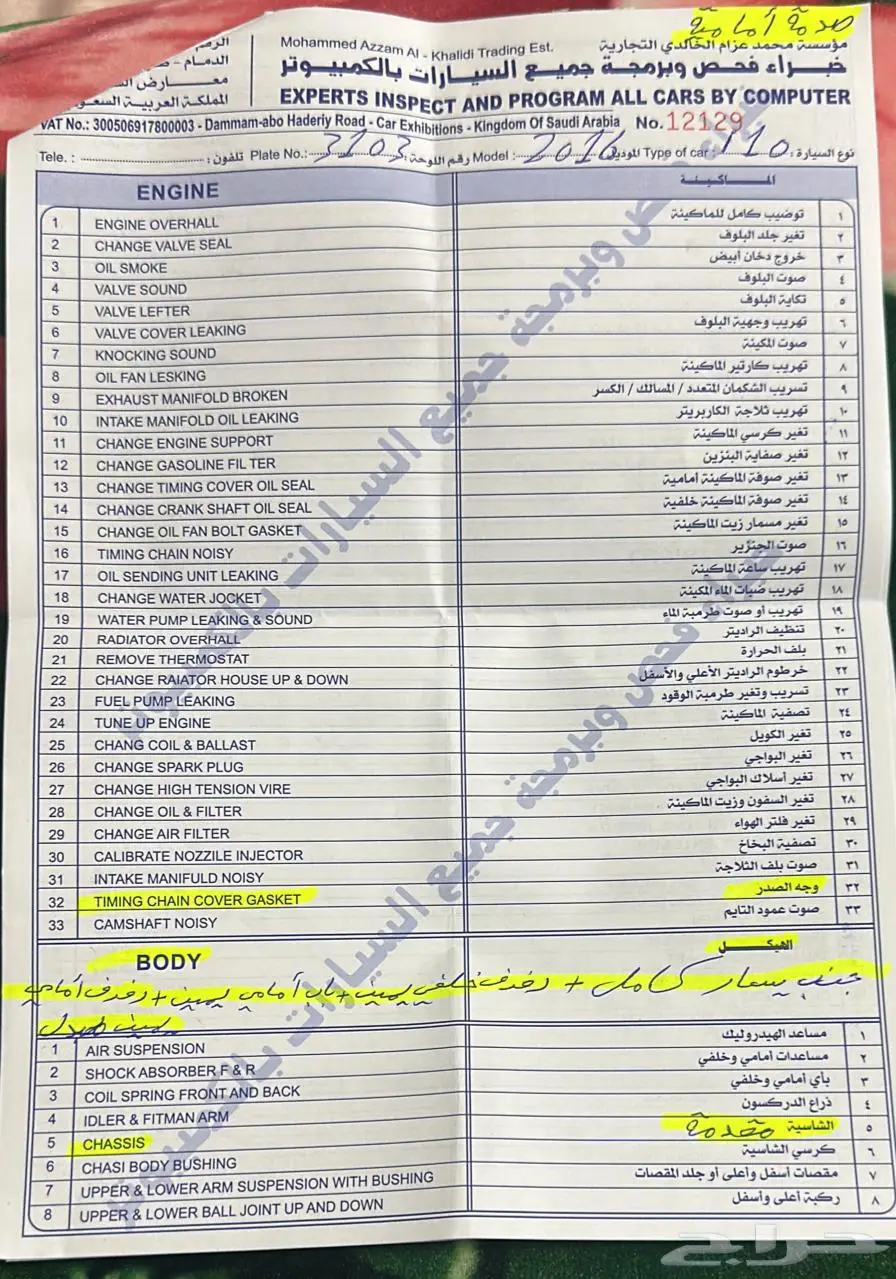 صدمة أمامية
Mohammed Azzam Al - Khalidi Trading Est. مؤسسة محمد عزام الخالدي التجارية
خبراء فحص وبرمجة جميع السيارات بالكمبيوتر
EXPERTS INSPECT AND PROGRAM ALL CARS BY COMPUTER
الدمام -
معارض
المملكة العربية
VAT No.: 300506917800003 - Dammam-abo Haderiy Road - Car Exhibitions - Kingdom Of Saudi Arabia No. 12129
Tele. : تلفون : Plate No.: 3103 رقم اللوحة: Model : 2016 الموديل Type of car : نوع السيارة :
ENGINE الماكينة
1 ENGINE OVERHALL توضيب كامل للماكينة ١
2 CHANGE VALVE SEAL تغير جلد البلوف ٢
3 OIL SMOKE خروج دخان أبيض ٣
4 VALVE SOUND صوت البلوف ٤
5 VALVE LEFTER تكاية البلوف ٥
6 VALVE COVER LEAKING تهريب وجهية البلوف ٦
7 KNOCKING SOUND صوت المكينة ٧
8 OIL FAN LESKING تهريب كارتير الماكينة ٨
9 EXHAUST MANIFOLD BROKEN تسريب الشكمان المتعدد / المسالك / الكسر ٩
10 INTAKE MANIFOLD OIL LEAKING تهريب ثلاجة الكاربريتر ١٠
11 CHANGE ENGINE SUPPORT تغير كرسي الماكينة ١١
12 CHANGE GASOLINE FILTER تغير صفاية البنزين ١٢
13 CHANGE TIMING COVER OIL SEAL تغير صوفة الماكينة أمامية ١٣
14 CHANGE CRANK SHAFT OIL SEAL تغير صوفة الماكينة خلفية ١٤
15 CHANGE OIL FAN BOLT GASKET تغير مسمار زيت الماكينة ١٥
16 TIMING CHAIN NOISY صوت الجنزير ١٦
17 OIL SENDING UNIT LEAKING تهريب ساعة الماكينة ١٧
18 CHANGE WATER JOCKET تهريب ضبات الماء المكينة ١٨
19 WATER PUMP LEAKING & SOUND تهريب أو صوت طرمبة الماء ١٩
20 RADIATOR OVERHALL تنظيف الراديتر ٢٠
21 REMOVE THERMOSTAT بلف الحرارة ٢١
22 CHANGE RAIATOR HOUSE UP & DOWN خرطوم الراديتر الأعلي والأسفل ٢٢
23 FUEL PUMP LEAKING تسريب وتغير طرمبة الوقود ٢٣
24 TUNE UP ENGINE تصفية الماكينة ٢٤
25 CHANG COIL & BALLAST تغير الكويل ٢٥
26 CHANGE SPARK PLUG تغير البواجي ٢٦
27 CHANGE HIGH TENSION VIRE تغير أسلاك البواجي ٢٧
28 CHANGE OIL & FILTER تغير السفون وزيت الماكينة ٢٨
29 CHANGE AIR FILTER تغير فلتر الهواء ٢٩
30 CALIBRATE NOZZILE INJECTOR تصفية البخاخ ٣٠
31 INTAKE MANIFULD NOISY صوت بلف الثلاجة ٣١
32 TIMING CHAIN COVER GASKET وجه الصدر ٣٢
33 CAMSHAFT NOISY صوت عمود التايم ٣٣
BODY الهيكل
جنب يسار كامل + رفرف خلفي يمين + باب أمامي يمين + رفرف أمامي
يمين
1 AIR SUSPENSION مساعد الهيدروليك ١
2 SHOCK ABSORBER F & R مساعدات أمامي وخلفي ٢
3 COIL SPRING FRONT AND BACK بأي أمامي وخلفي ٣
4 IDLER & FITMAN ARM ذراع الدركسون ٤
5 CHASSIS الشاسية مقدمة ٥
6 CHASI BODY BUSHING كرسي الشاسية ٦
7 UPPER & LOWER ARM SUSPENSION WITH BUSHING مقصات أسفل وأعلى أو جلد المقصات ٧
8 UPPER & LOWER BALL JOINT UP AND DOWN ركبة أعلى وأسفل ٨
خبراء فحص وبرمجة جميع السيارات بالكمبيوتر
خبراء فحص وبرمجة جميع السيارات بالكمبيوتر
حراج